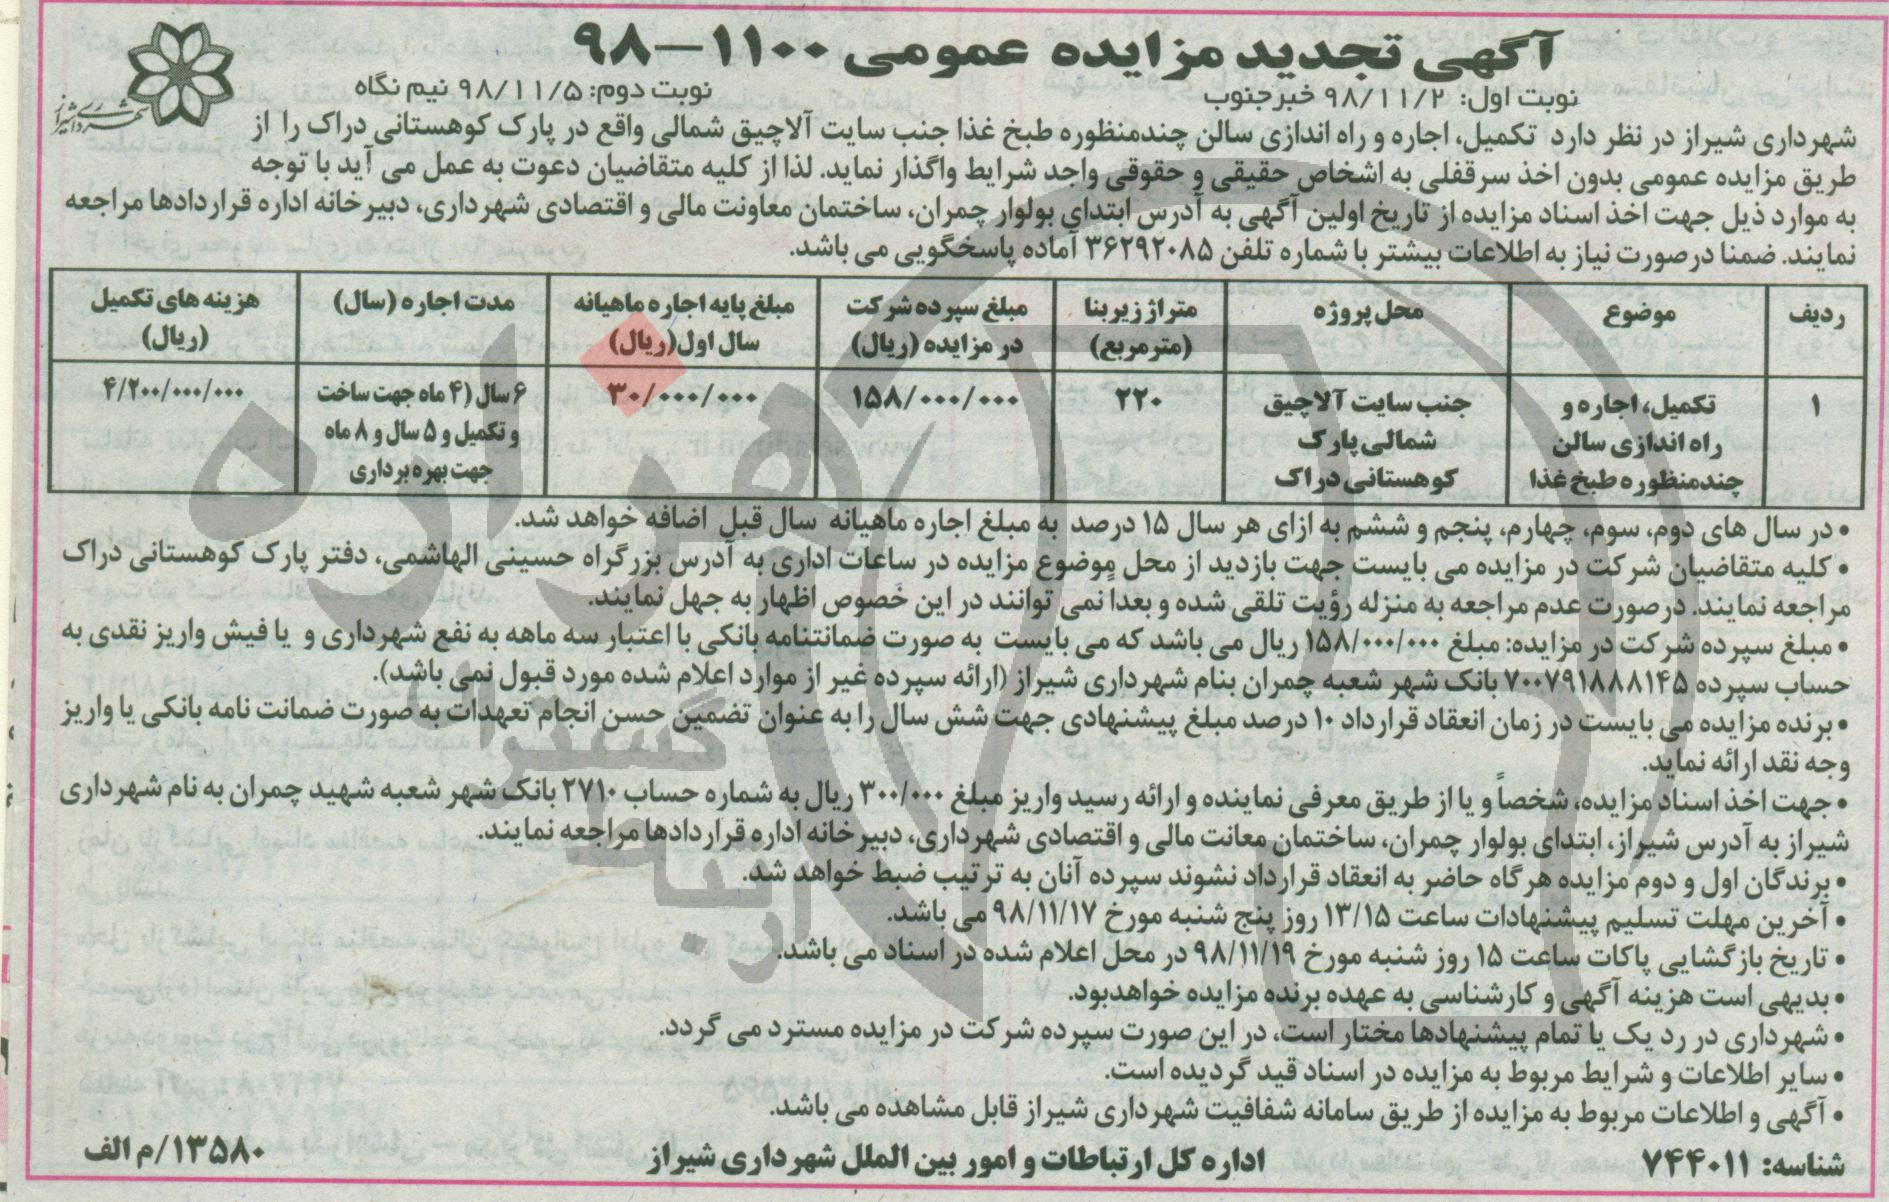 آگهی تجدید مزایده عمومی ۱۱۰۰-۹۸
نوبت اول: ۹۸/۱۱/۲ خبرجنوب
نوبت دوم: ۹۸/۱۱/۵ نیم نگاه
شهرداری شیراز
شهرداری شیراز در نظر دارد تکمیل، اجاره و راه اندازی سالن چندمنظوره طبخ غذا جنب سایت آلاچیق شمالی واقع در پارک کوهستانی دراک را از
طریق مزایده عمومی بدون اخذ سرقفلی به اشخاص حقیقی و حقوقی واجد شرایط واگذار نماید. لذا از کلیه متقاضیان دعوت به عمل می آید با توجه
به موارد ذیل جهت اخذ اسناد مزایده از تاریخ اولین آگهی به آدرس ابتدای بولوار چمران، ساختمان معاونت مالی و اقتصادی شهرداری، دبیرخانه اداره قراردادها مراجعه
نمایند. ضمنا درصورت نیاز به اطلاعات بیشتر با شماره تلفن ۳۶۲۹۲۰۸۵ آماده پاسخگویی می باشد.
ردیف
موضوع
محل پروژه
متراژ زیربنا
(مترمربع)
مبلغ سپرده شرکت
در مزایده (ریال)
مبلغ پایه اجاره ماهیانه
سال اول(ریال)
مدت اجاره (سال)
هزینه های تکمیل
(ریال)
۱
تکمیل، اجاره و
راه اندازی سالن
چندمنظوره طبخ غذا
جنب سایت آلاچیق
شمالی پارک
کوهستانی دراک
۲۲۰
۱۵۸/۰۰۰/۰۰۰
۳۰/۰۰۰/۰۰۰
۶ سال (۴ ماه جهت ساخت
و تکمیل و ۵ سال و ۸ ماه
جهت بهره برداری
۴/۲۰۰/۰۰۰/۰۰۰
• در سال های دوم، سوم، چهارم، پنجم و ششم به ازای هر سال ۱۵ درصد به مبلغ اجاره ماهیانه سال قبل اضافه خواهد شد.
• کلیه متقاضیان شرکت در مزایده می بایست جهت بازدید از محل موضوع مزایده در ساعات اداری به آدرس بزرگراه حسینی الهاشمی، دفتر پارک کوهستانی دراک
مراجعه نمایند. درصورت عدم مراجعه به منزله رؤیت تلقی شده و بعدا نمی توانند در این خصوص اظهار به جهل نمایند.
• مبلغ سپرده شرکت در مزایده: مبلغ ۱۵۸/۰۰۰/۰۰۰ ریال می باشد که می بایست به صورت ضمانتنامه بانکی با اعتبار سه ماهه به نفع شهرداری و یا فیش واریز نقدی به
حساب سپرده ۷۰۰۷۹۱۸۸۸۱۴۵ بانک شهر شعبه چمران بنام شهرداری شیراز (ارائه سپرده غیر از موارد اعلام شده مورد قبول نمی باشد).
• برنده مزایده می بایست در زمان انعقاد قرارداد ۱۰ درصد مبلغ پیشنهادی جهت شش سال را به عنوان تضمین حسن انجام تعهدات به صورت ضمانت نامه بانکی یا واریز
وجه نقد ارائه نماید.
• جهت اخذ اسناد مزایده، شخصاً و یا از طریق معرفی نماینده و ارائه رسید واریز مبلغ ۳۰۰/۰۰۰ ریال به شماره حساب ۲۷۱۰ بانک شهر شعبه شهید چمران به نام شهرداری
شیراز به آدرس شیراز، ابتدای بولوار چمران، ساختمان معانت مالی و اقتصادی شهرداری، دبیرخانه اداره قراردادها مراجعه نمایند.
• برندگان اول و دوم مزایده هرگاه حاضر به انعقاد قرارداد نشوند سپرده آنان به ترتیب ضبط خواهد شد.
• آخرین مهلت تسلیم پیشنهادات ساعت ۱۳/۱۵ روز پنج شنبه مورخ ۹۸/۱۱/۱۷ می باشد.
• تاریخ بازگشایی پاکات ساعت ۱۵ روز شنبه مورخ ۹۸/۱۱/۱۹ در محل اعلام شده در اسناد می باشد.
• بدیهی است هزینه آگهی و کارشناسی به عهده برنده مزایده خواهدبود.
• شهرداری در رد یک یا تمام پیشنهادها مختار است، در این صورت سپرده شرکت در مزایده مسترد می گردد.
• سایر اطلاعات و شرایط مربوط به مزایده در اسناد قید گردیده است.
• آگهی و اطلاعات مربوط به مزایده از طریق سامانه شفافیت شهرداری شیراز قابل مشاهده می باشد.
شناسه: ۷۴۴۰۱۱
اداره کل ارتباطات و امور بین الملل شهرداری شیراز
۱۳۵۸۰/م الف